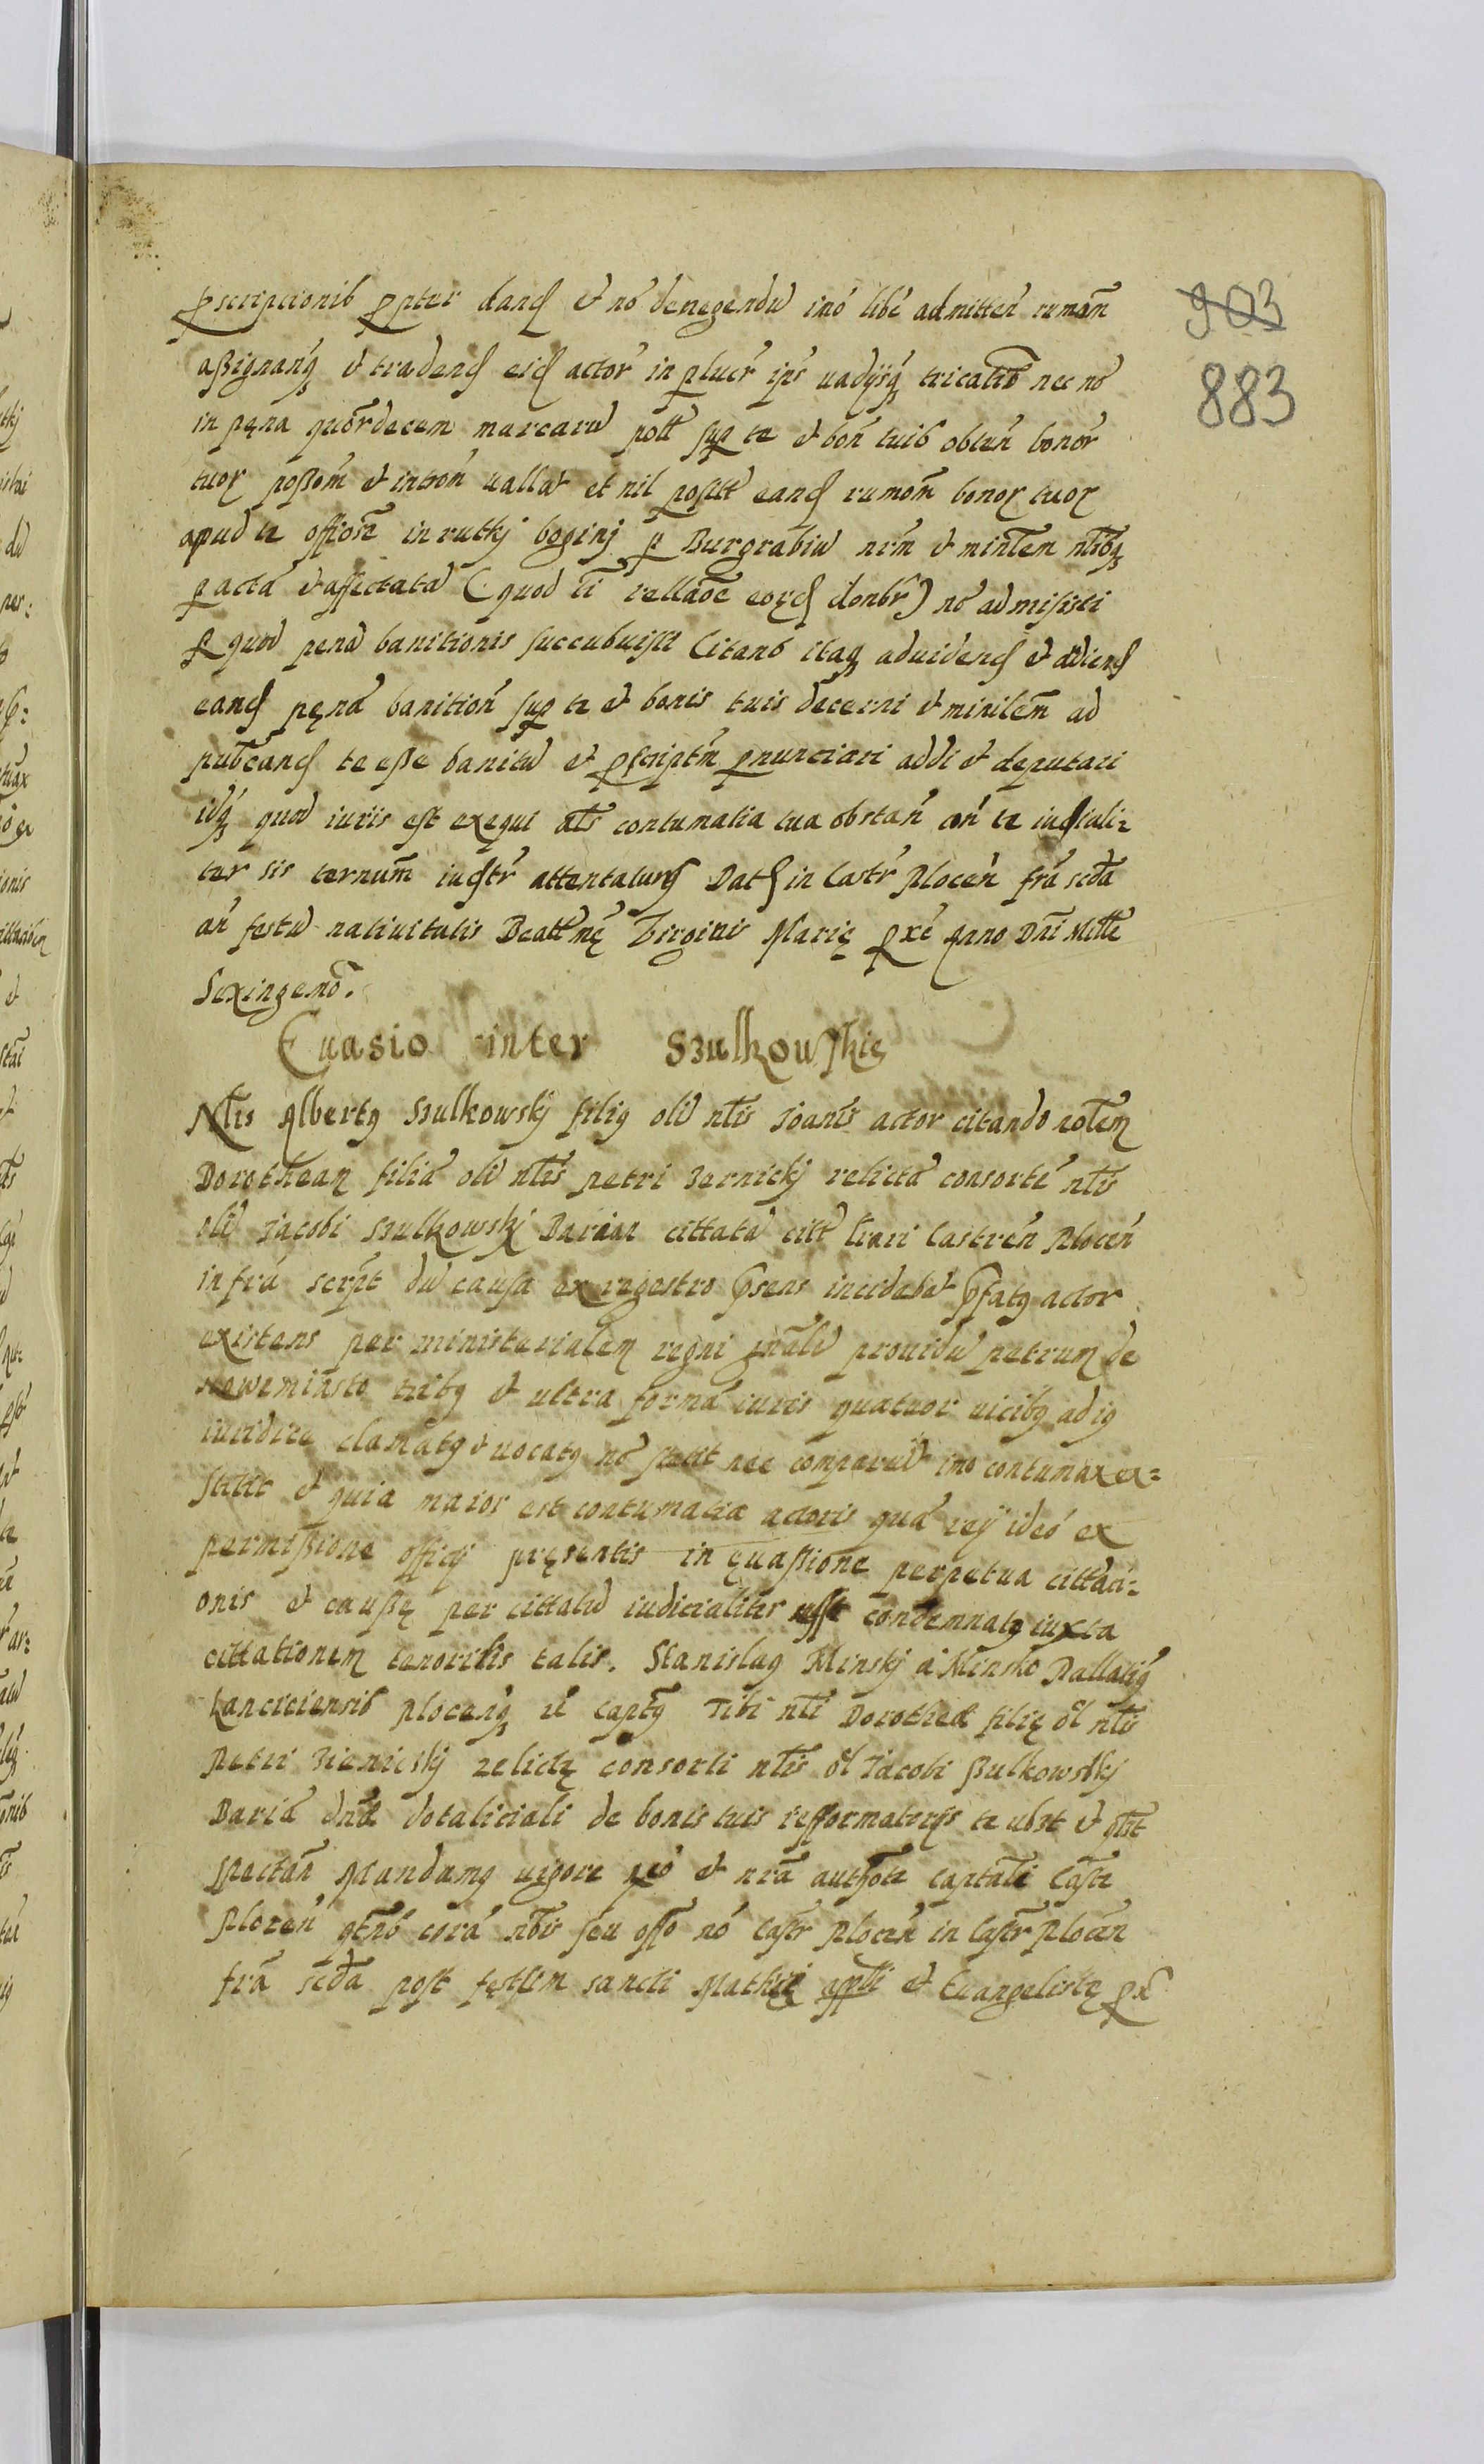 903
883
ꝑscripcionib ꝓpter dand et nō denegendū imō libē admitten rumām
aßignanq et tradend eid actor in ꝑlucr ips uadijsq tricatib nec nō
in pęna quordecem marcarū pott sup te et bon tuis obten bonor
tuor poßom et introm uallat et nil postt eand rumōm bonor tuor
apud te offiom in rutkj boginj ꝑ Burgrabiū nrm et minlem ntibq
ꝑ acta et affectata (quod ti rellaōe eord donbr) nō admisisti
ꝑ quod pena banitionis succubuisti Citamb itaq aduidend et audiend
eand pęna banition sup te et bonis tuis decerni et minilem ad
pubcand te eße banitū et ꝓscriptm ꝓnunciari addi et deputari
idq quod iuris est exequi ats contumatia tua obstan an te iudiciali=
ter sis ternum iudtr attentaturq Datq in Castr Plocen fra scda
an festū natiuitatis Beattmę Virginis Marię ꝓxe Anno Dni Mille
Sexingemo.
Euasio inter Szulkowskie
Ntis Albertq Szulkowskj filiq oli ntis Joanis actor citando notem
Dorotheam filia oli ntis petri Bernickj relicta consorte ntis
oli Jacobi Szulkowskj cittata citt Castren Plocen
infra script dū causa ex regestro ꝑsens incidebat ꝑfatq actor
existens per ministerialem regni gnale prouidū petrum de
nowemiasto tribq et ultra forma iuris quatuor uicibq ad iq
iuridice clamatq et uocatq nō stetit nec comparuit imo contumax ex=
stitit et quia maior est contumatia actoris qua rei ideo ex
permißione officij pręsentis in euaßione perpetua cittati=
onis et caußę per cittatū iudicialiter est condemnatq iuxta
cittationem tenoris talis. Stanislaq Minskj a Minsko Pallatiq
Lanciciensis plocenq et captq Tibi nti Dorotheae filię ol ntis
Petri Biernickj relictę consorti ntis ol Jacobi Szulkowskj
dotaliciali de bonis tuis
spectan Mandamq uigore et nra authote captali Castr
Plocen cora nobis seu offo nō Castr Plocen in Castr Plocen
fra scda post festum sancti Mathei appli et Euangelistę ꝓx